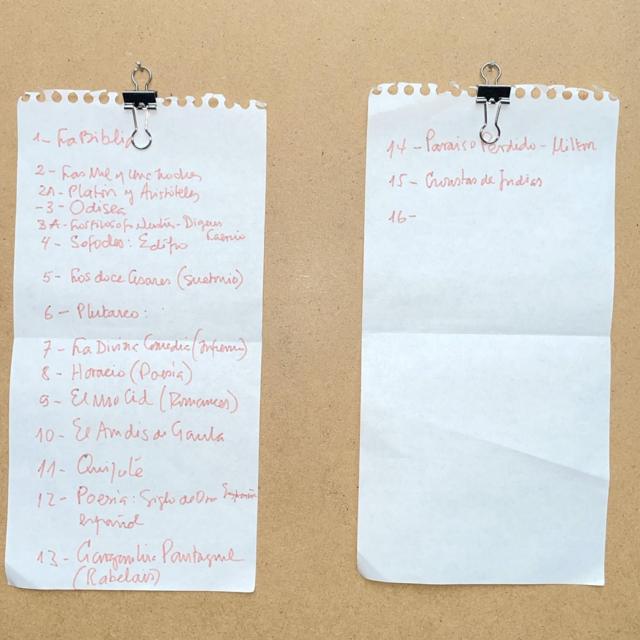 1- La Biblia
2- Las Mil y una noches
2A- Platón y Aristóteles
-3- Odisea
3A- Diógenes
Laercio
4- Sófocles: Edipo
5- Los doce Césares (Suetonio)
6- Plutarco:
7- La Divina Comedia (Infierno)
8- Horacio (Poesía)
9- El Mio Cid (Romances)
10- El Amadis de Gaula
11- Quijote
12- Poesía: Siglo de Oro
español
13- Gargantúa Pantagruel
(Rabelais)
14- Paraiso Perdido - Milton
15- Cronistas de Indias
16-